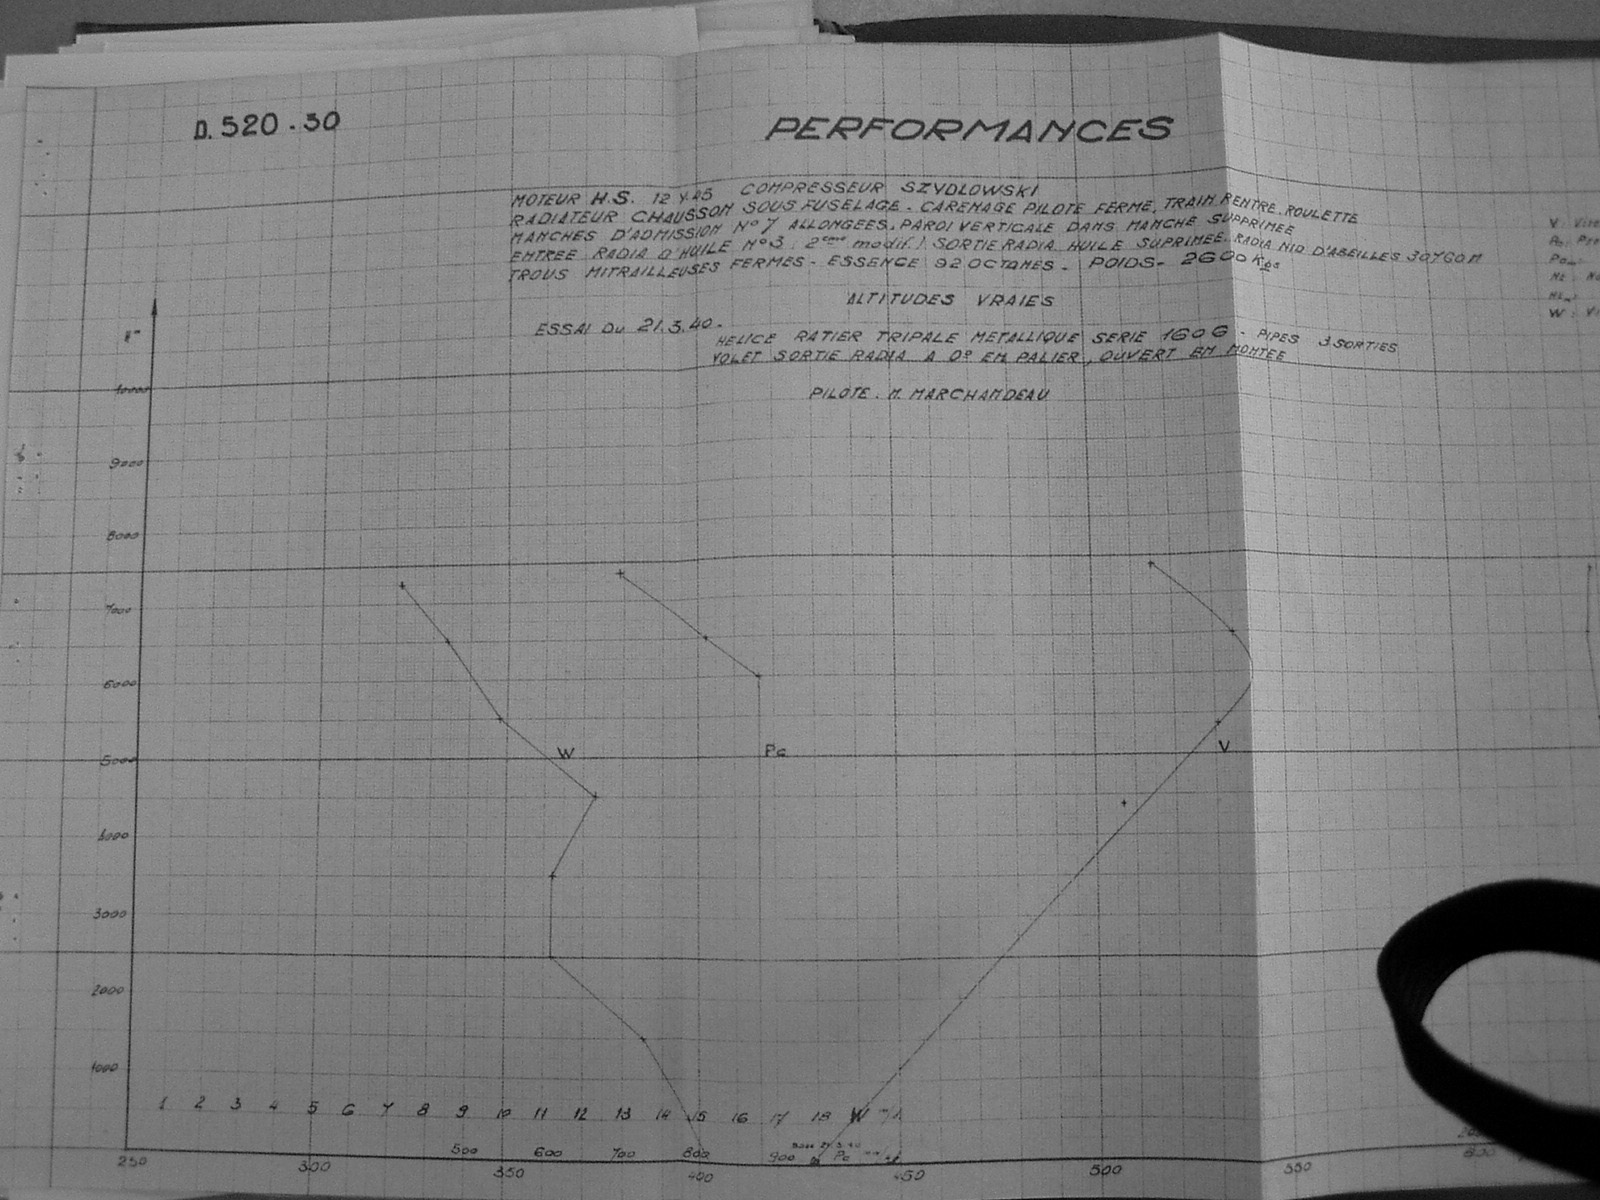 D. 520 - 30
PERFORMANCES
MOTEUR H.S. 12 Y.45 COMPRESSEUR SZYDLOWSKI
RADIATEUR CHAUSSON SOUS FUSELAGE - CARENAGE PILOTE FERME, TRAIN RENTRE, ROULETTE
MANCHES D'ADMISSION N° 7 ALLONGEES, PAROI VERTICALE DANS MANCHE SUPPRIMEE
ENTREE RADIA D'HUILE N° 3 (2eme modif.) SORTIE RADIA HUILE SUPRIMEE. RADIA NID D'ABEILLES
TROUS MITRAILLEUSES FERMES - ESSENCE 92 OCTANES - POIDS - 2600 Kgs
ALTITUDES VRAIES
ESSAI Du 21.3.40 -
HELICE RATIER TRIPALE METALLIQUE SERIE 160 G - PIPES 3 SORTIES
VOLET SORTIE RADIA A 0° EN PALIER, OUVERT EN MONTEE
PILOTE. M. MARCHANDEAU
V :
W :
10000
9000
8000
7000
6000
5000
4000
3000
2000
1000
W
Pc
V
1 2 3 4 5 6 7 8 9 10 11 12 13 14 15 16 17 18 W
500 600 700 800 900 Pc
250 300 350 400 450 500 550